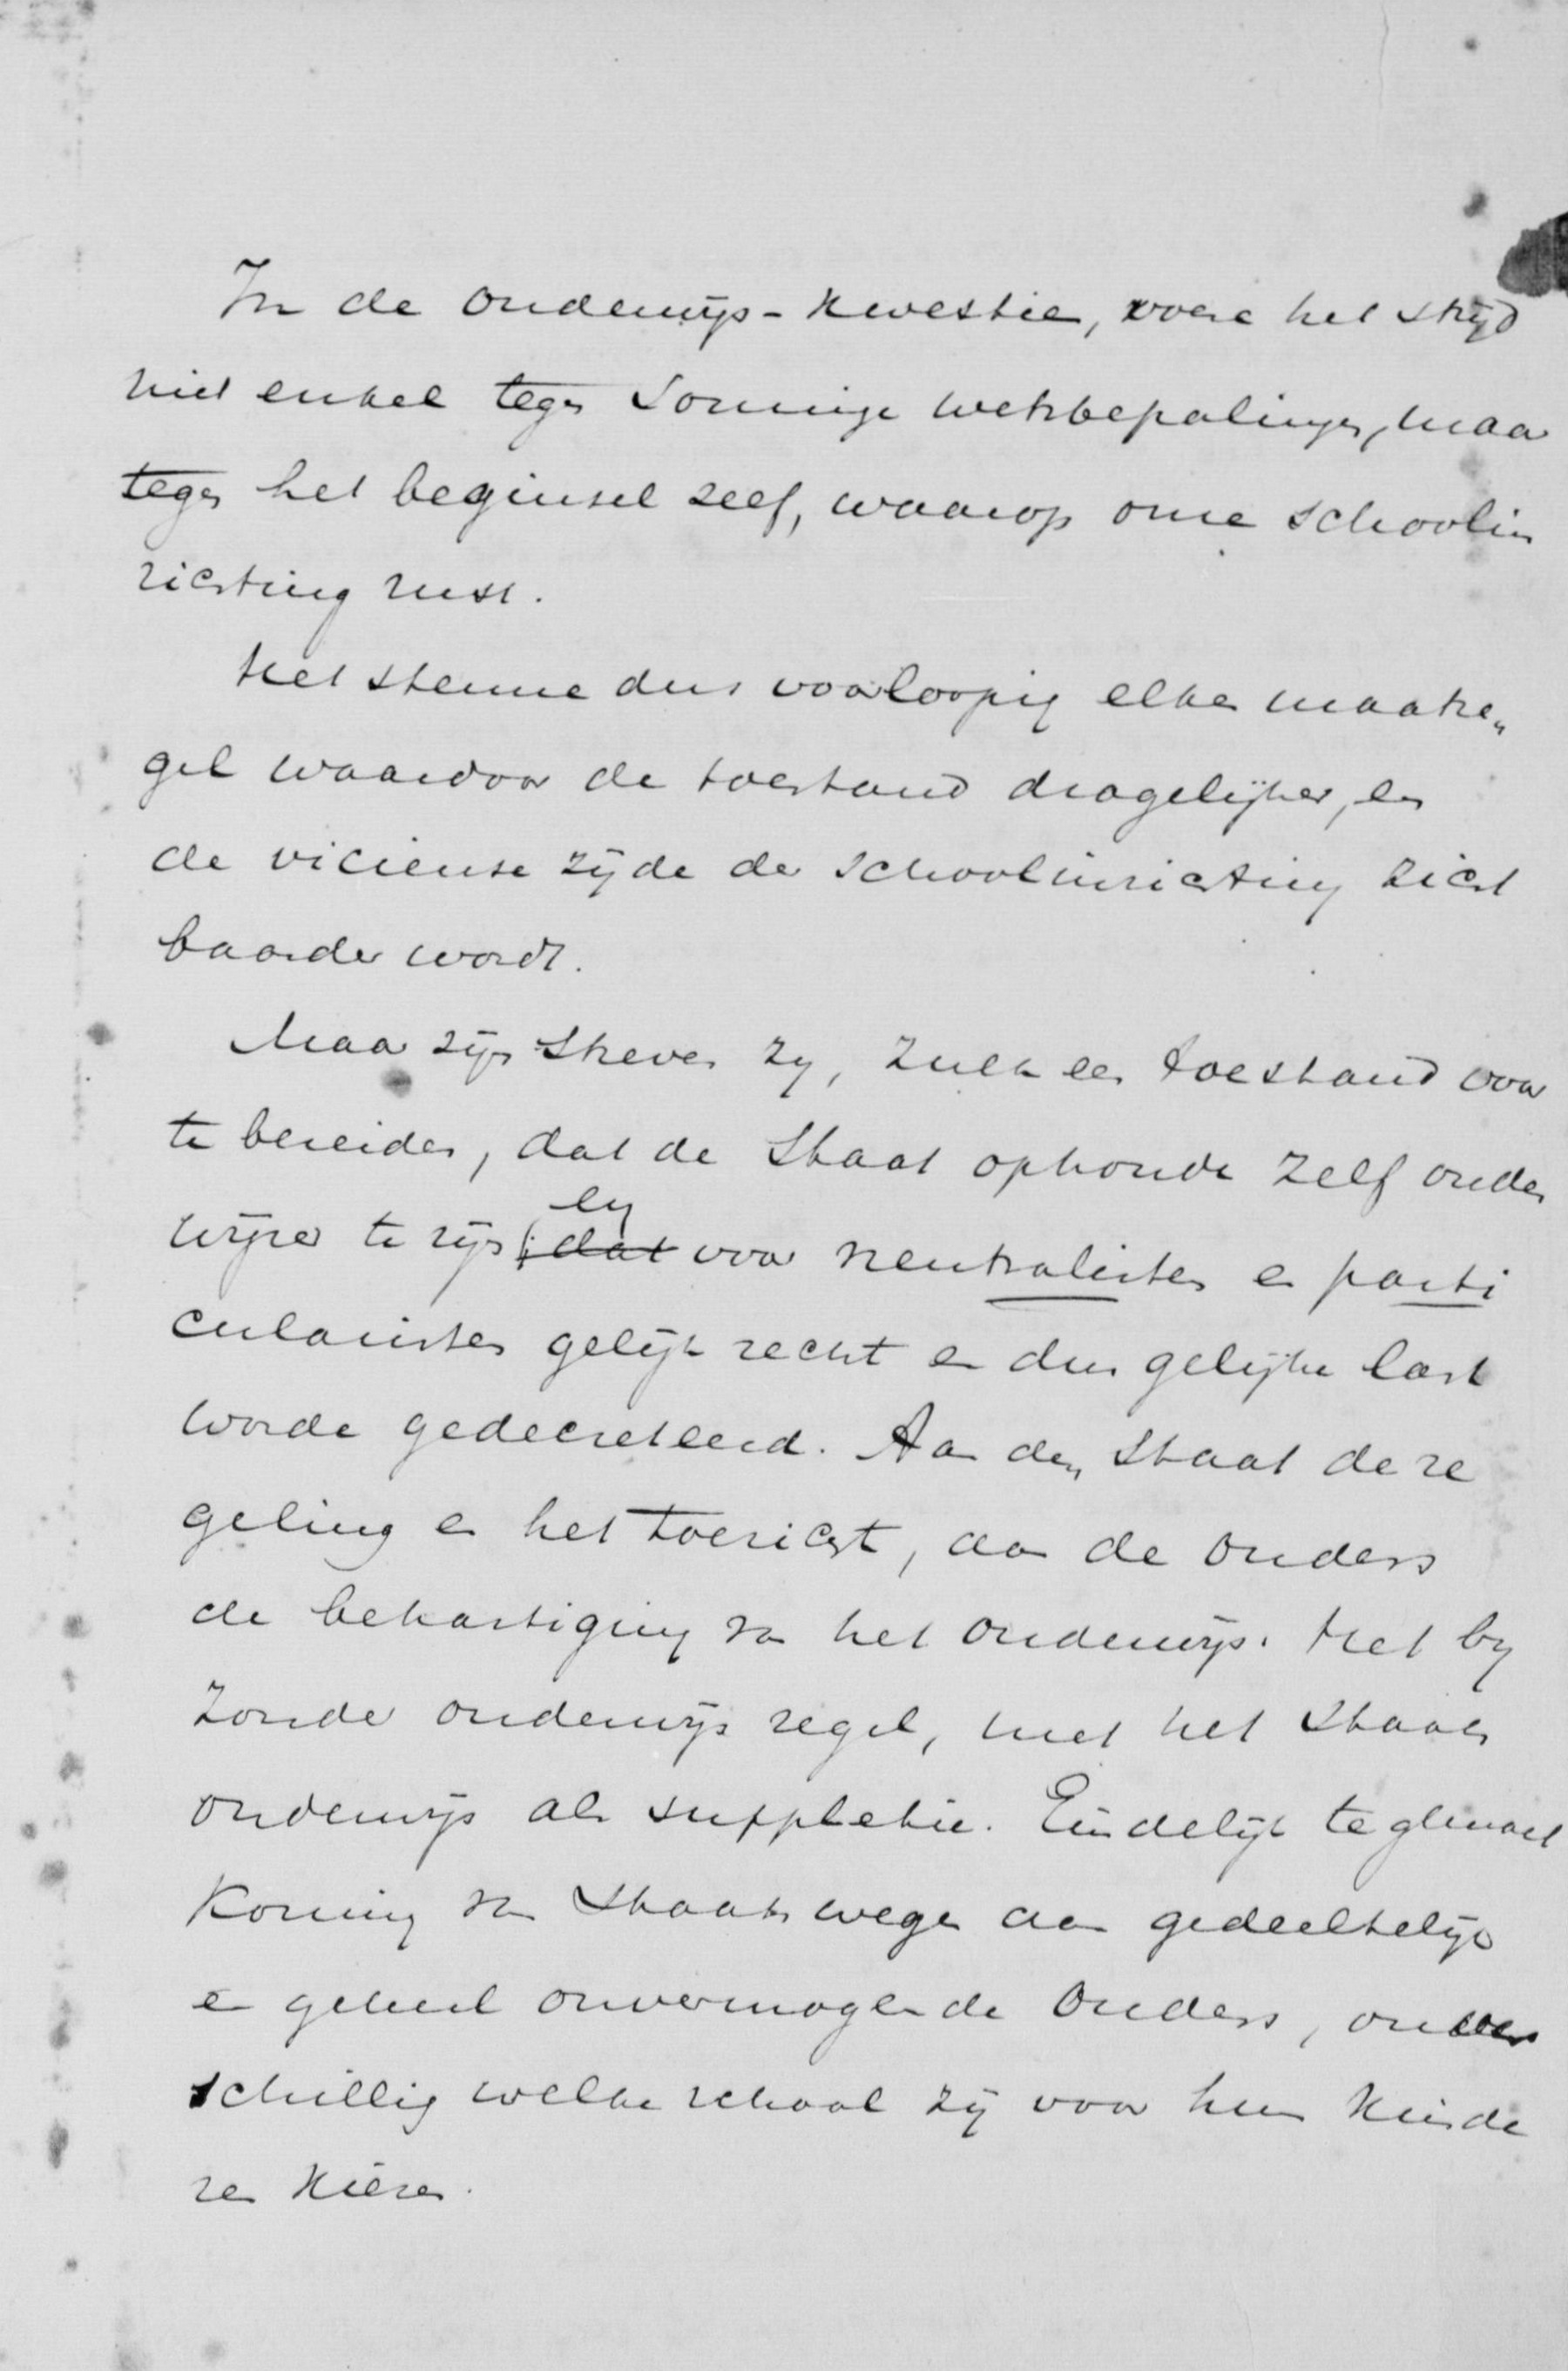 In de onderwijs-kwestie, voere het strijd
niet enkel tegen sommige wetsbepalingen, maar
tegen het beginsel zelf, waarop onze schoolin
richting rust.
Het steune dus voorloopig elken maatre„
gel waardoor de toestand dragelijker, en
de vicieuse zijde der schoolinrichting zicht
baarder wordt.
Maar zijn streven zy, zulk een toestand voor
te bereiden, dat de Staat ophoude zelf onder
wijzer te zijn; dat en voor neutralisten en parti
cularisten gelijk recht en dus gelijke last
worde gedecreteerd. Aan den Staat de re
geling en het toezicht, aan de ouders
de behartiging van het onderwijs. Het by
zonder onderwijs regel, met het Staats
onderwijs als suppletie. Eindelijk tegemoet
koming van Staatswege aan gedeeltelijk
en geheel onvermogende Ouders, onver
schillig welke school zij voor hun kinde
ren kiezen.